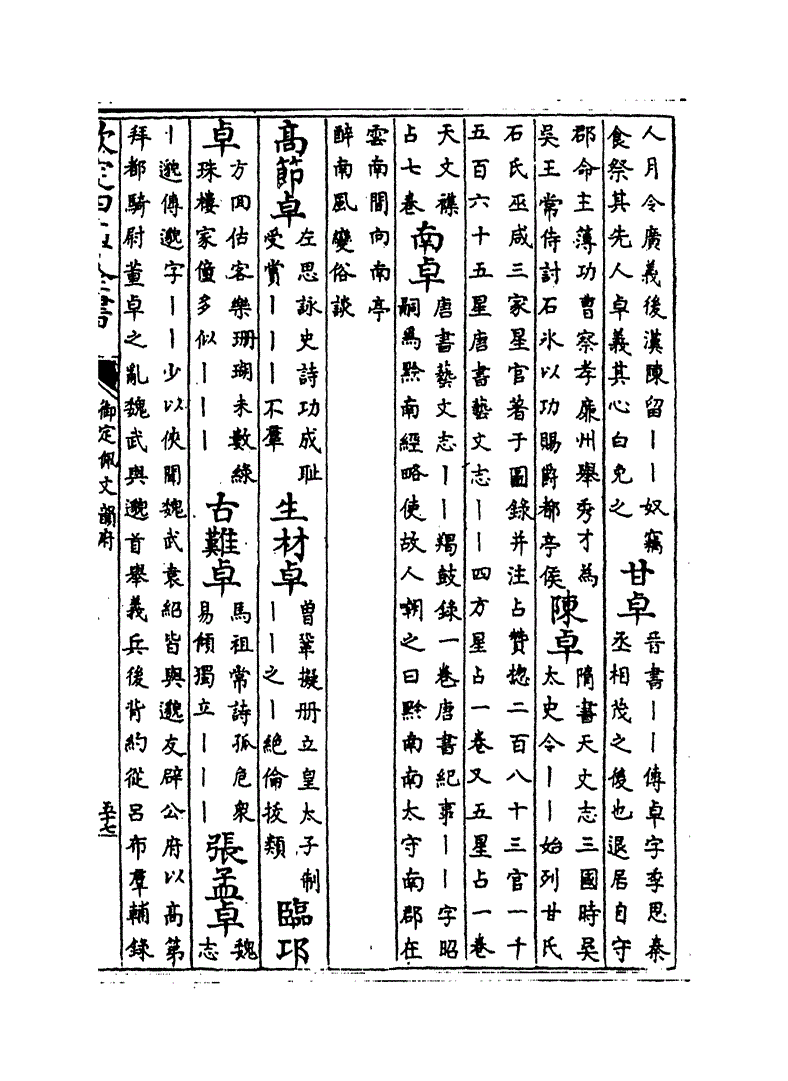 人月令廣義後漢陳留丨丨奴竊
食祭其先人卓義其心白免之
甘卓
晉書丨丨傳卓字季思秦
丞相茂之後也退居自守
郡命主薄功曹察孝廉州舉秀才為
吳王常侍討石氷以功賜爵都亭侯
陳卓
隋書天文志三國時吳
太史令丨丨始列甘氏
石氏巫咸三家星官著于圖錄并注占贊摠二百八十三官一千
五百六十五星唐書藝文志丨丨四方星占一卷又五星占一卷
天文襍
占七卷
南卓
唐書藝文志丨丨羯鼓錄一卷唐書紀事丨丨字昭
嗣爲黔南經略使故人嘲之曰黔南南太守南郡在
雲南間向南亭
醉南風變俗談
高節卓
左思詠史詩功成耻
受賞丨丨丨不羣
生材卓
曾鞏擬册立皇太子制
丨丨之丨絶倫拔類
臨邛
卓
方回估客樂珊瑚未數綠
珠樓家僮多似丨丨丨
古難卓
馬祖常詩孤危衆
易傾獨立丨丨丨
張孟卓
魏
志
丨邈傳邈字丨丨少以俠聞魏武袁紹皆與邈友辟公府以高第
拜都騎尉董卓之亂魏武與邈首舉義兵後背約從呂布羣輔錄
欽定四庫全書
御定佩文韻府
五十七